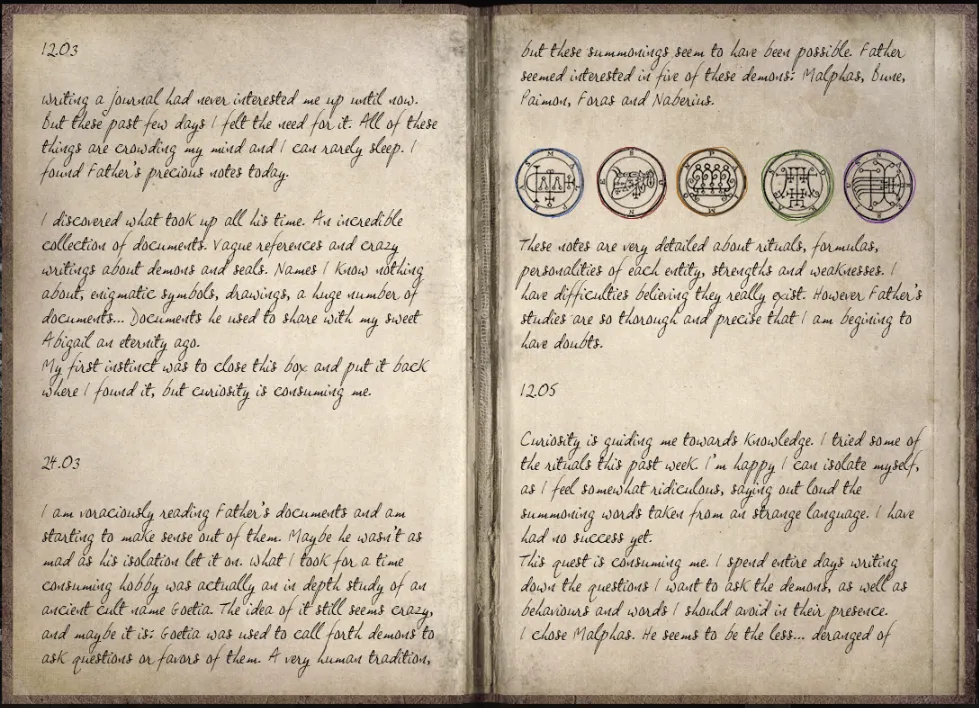 12.03
writing a journal had never interested me up until now.
But these past few days I felt the need for it. All of these
things are crowding my mind and I can rarely sleep. I
found Father's precious notes today.
I discovered what took up all his time. An incredible
collection of documents. Vague references and crazy
writings about demons and seals. Names I know nothing
about, enigmatic symbols, drawings, a huge number of
documents... Documents he used to share with my sweet
Abigail an eternity ago.
My first instinct was to close this box and put it back
where I found it, but curiosity is consuming me.
24.03
I am voraciously reading Father's documents and am
starting to make sense out of them. Maybe he wasn't as
mad as his isolation let it on. What I took for a time
consuming hobby was actually an in depth study of an
ancient cult name Goetia. The idea of it still seems crazy,
and maybe it is: Goetia was used to call forth demons to
ask questions or favors of them. A very human tradition,
but these summonings seem to have been possible. Father
seemed interested in five of these demons: Malphas, Bune,
Paimon, Foras and Naberius.
These notes are very detailed about rituals, formulas,
personalities of each entity, strengths and weaknesses. I
have difficulties believing they really exist. However Father's
studies are so thorough and precise that I am begining to
have doubts.
12.05
Curiosity is guiding me towards Knowledge. I tried some of
the rituals this past week. I'm happy I can isolate myself,
as I feel somewhat ridiculous, saying out loud the
summoning words taken from an strange language. I have
had no success yet.
This quest is consuming me. I spend entire days writing
down the questions I want to ask the demons, as well as
behaviours and words I should avoid in their presence.
I chose Malphas. He seems to be the less... deranged of